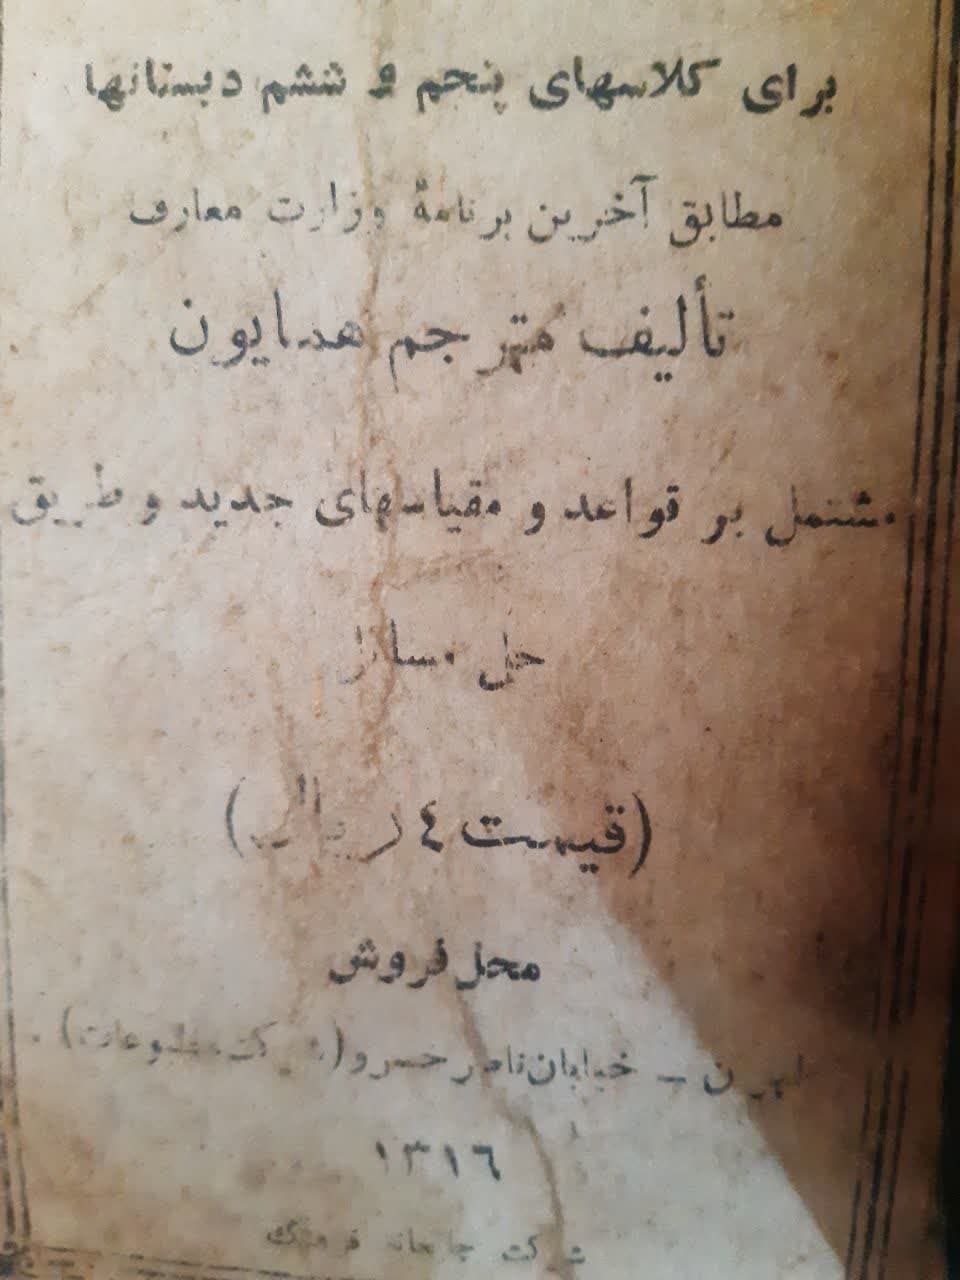 برای کلاسهای پنجم و ششم دبستانها
مطابق آخرین برنامهٔ وزارت معارف
تألیف مترجم همایون
مشتمل بر قواعد و مقیاسهای جدید و طریق
حل مسائل
(قیمت ٤ ریال)
محل فروش
طهران – خیابان ناصر خسرو (شرکت مطبوعات).
١٣١٦
شرکت چاپخانه فرهنگ